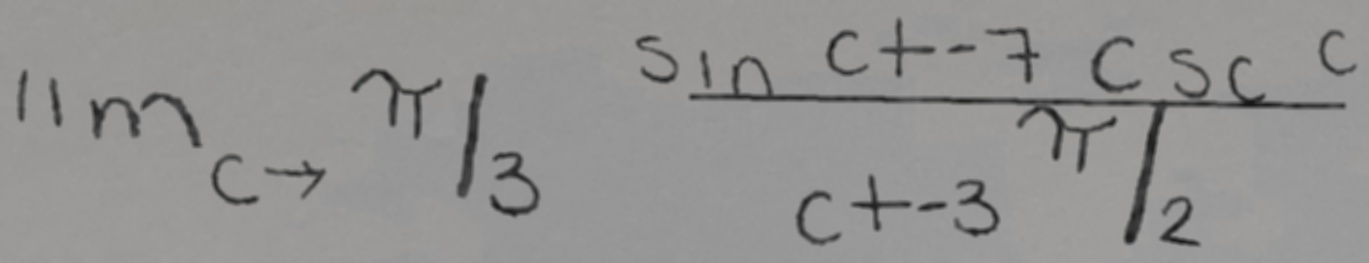 lim c→ π/3 (sin c + -7 csc c) / (c + -3 π/2)